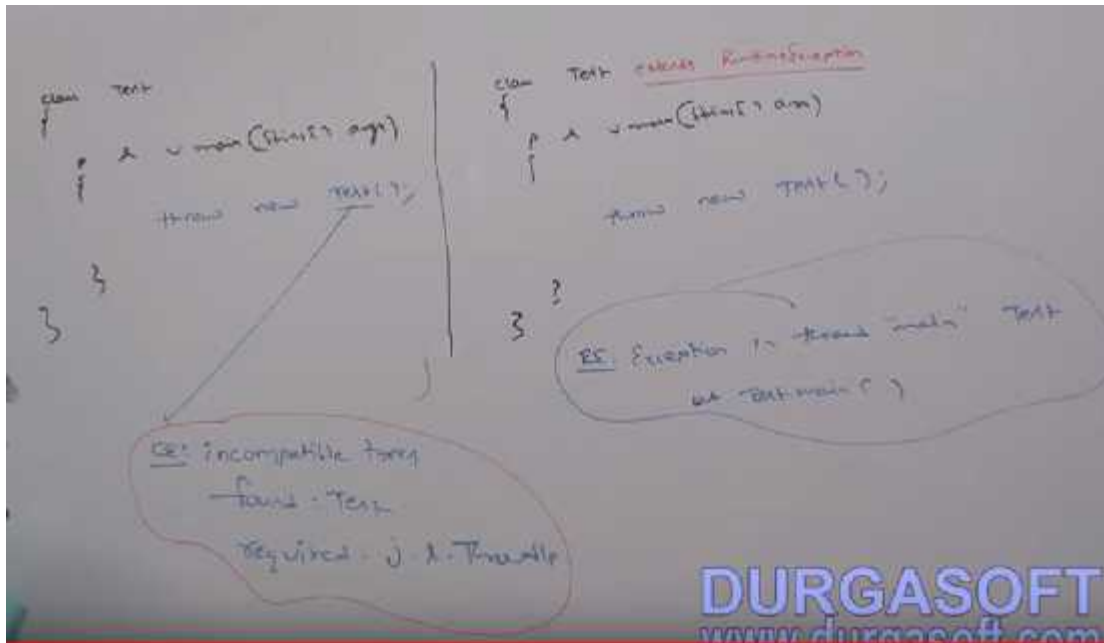 class Test
{
p s v main(String[] args)
{
throw new Test();
}
}
CE: incompatible types
found : Test
required : j.l.Throwable
class Test extends RuntimeException
{
p s v main(String[] args)
{
throw new Test();
}
}
RE: Exception in thread "main" Test
at Test.main( )
DURGASOFT
www.durgasoft.com